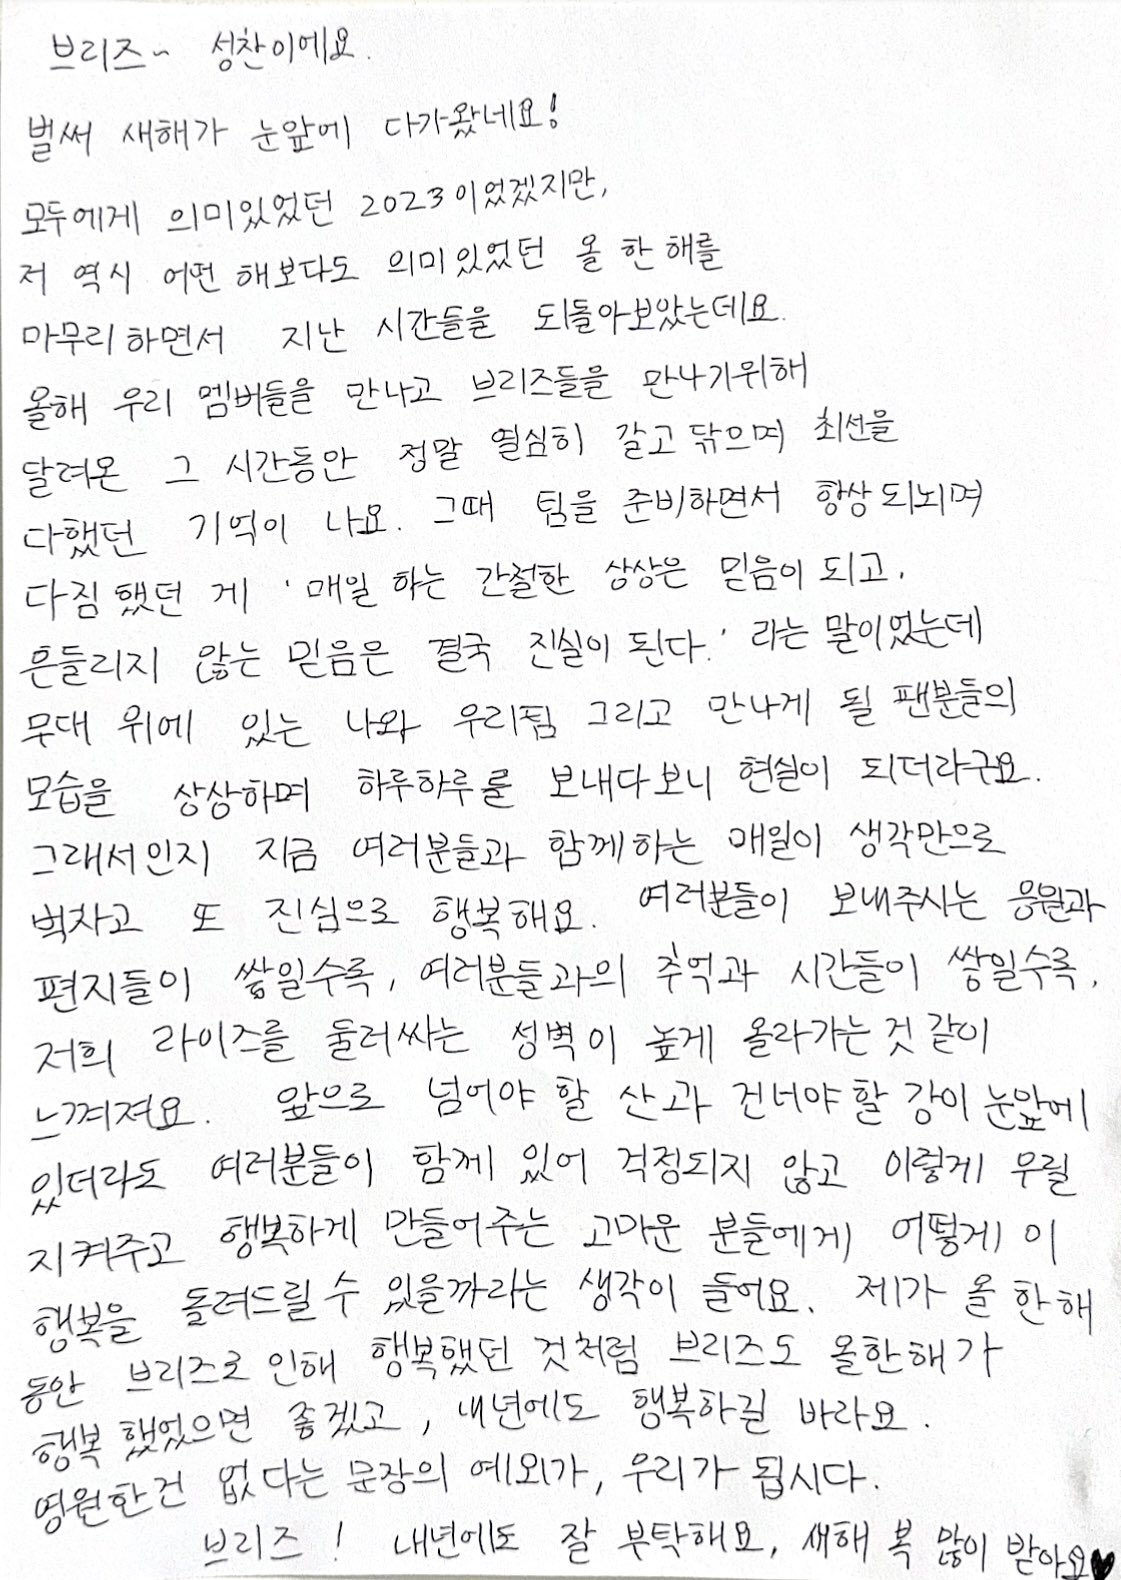 브리즈~ 성찬이에요.
벌써 새해가 눈앞에 다가왔네요!
모두에게 의미있었던 2023이었겠지만,
저 역시 어떤 해보다도 의미있었던 올 한해를
마무리하면서 지난 시간들을 되돌아보았는데요.
올해 우리 멤버들을 만나고 브리즈들을 만나기위해
달려온 그 시간동안 정말 열심히 갈고닦으며 최선을
다했던 기억이 나요. 그때 팀을 준비하면서 항상되뇌며
다짐했던 게 '매일 하는 간절한 상상은 믿음이 되고,
흔들리지 않는 믿음은 결국 진실이 된다.' 라는 말이었는데
무대 위에 있는 나와 우리팀 그리고 만나게 될 팬분들의
모습을 상상하며 하루하루를 보내다보니 현실이 되더라구요.
그래서인지 지금 여러분들과 함께하는 매일이 생각만으로
벅차고 또 진심으로 행복해요. 여러분들이 보내주시는 응원과
편지들이 쌓일수록, 여러분들과의 추억과 시간들이 쌓일수록,
저희 라이즈를 둘러싸는 성벽이 높게 올라가는것 같이
느껴져요. 앞으로 넘어야 할 산과 건너야할 강이 눈앞에
있더라도 여러분들이 함께 있어 걱정되지 않고 이렇게 우릴
지켜주고 행복하게 만들어주는 고마운 분들에게 어떻게 이
행복을 돌려드릴 수 있을까라는 생각이 들어요. 제가 올 한해
동안 브리즈로 인해 행복했던 것처럼 브리즈도 올한해가
행복했었으면 좋겠고, 내년에도 행복하길 바라요.
영원한건 없다는 문장의 예외가, 우리가 됩시다.
브리즈! 내년에도 잘 부탁해요, 새해 복 많이 받아요♥